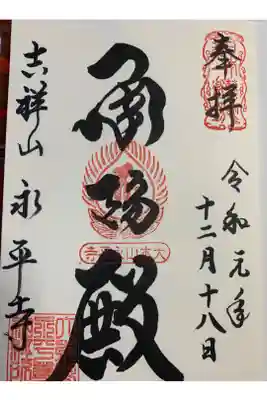 奉拝
令和元年
十二月十八日
承陽殿
大本山永平寺
吉祥山永平寺